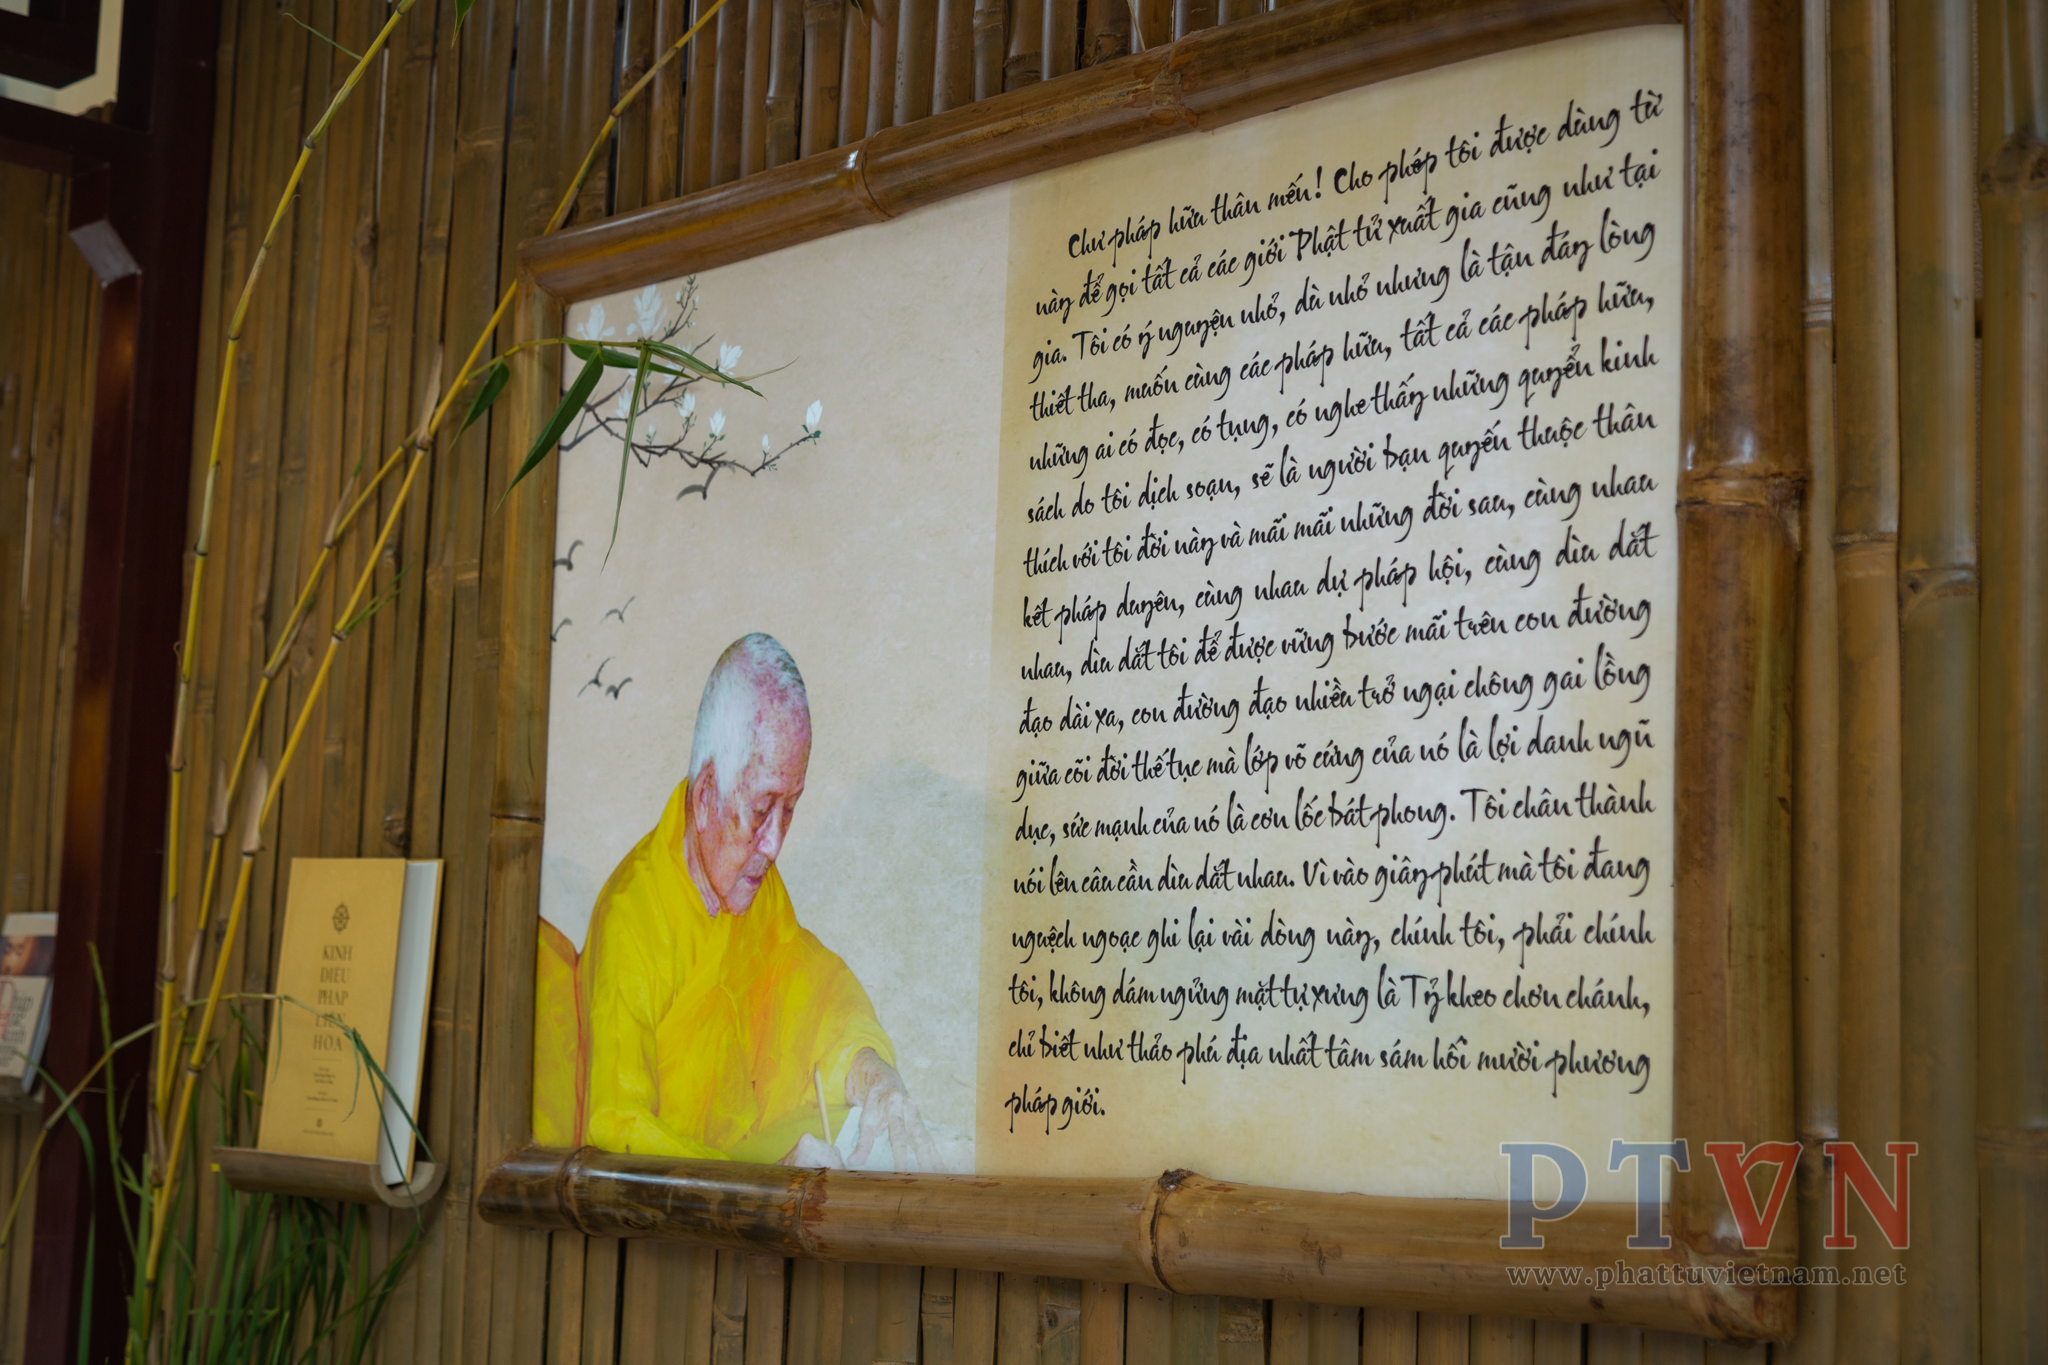 Chư pháp hữu thân mến! Cho phép tôi được dùng từ
này để gọi tất cả các giới Phật tử xuất gia cũng như tại
gia. Tôi có ý nguyện nhỏ, dù nhỏ nhưng là tận đáy lòng
thiết tha, muốn cùng các pháp hữu, tất cả các pháp hữu,
những ai có đọc, có tụng, có nghe thấy những quyển kinh
sách do tôi dịch soạn, sẽ là người bạn quyến thuộc thân
thích với tôi đời này và mãi mãi những đời sau, cùng nhau
kết pháp duyên, cùng nhau dự pháp hội, cùng dìu dắt
nhau, dìu dắt tôi để được vững bước mãi trên con đường
đạo dài xa, con đường đạo nhiều trở ngại chông gai lồng
giữa cõi đời thế tục mà lớp võ cứng của nó là lợi danh ngũ
dục, sức mạnh của nó là cơn lốc bát phong. Tôi chân thành
nói lên câu cần dìu dắt nhau. Vì vào giây phút mà tôi đang
nguệch ngoạc ghi lại vài dòng này, chính tôi, phải chính
tôi, không dám ngửng mặt tự xưng là Tỷ kheo chơn chánh,
chỉ biết như thảo phú địa nhất tâm sám hối mười phương
pháp giới.
KINH
DIỆU
PHÁP
LIÊN
HOA
PTVN
www.phattuvietnam.net